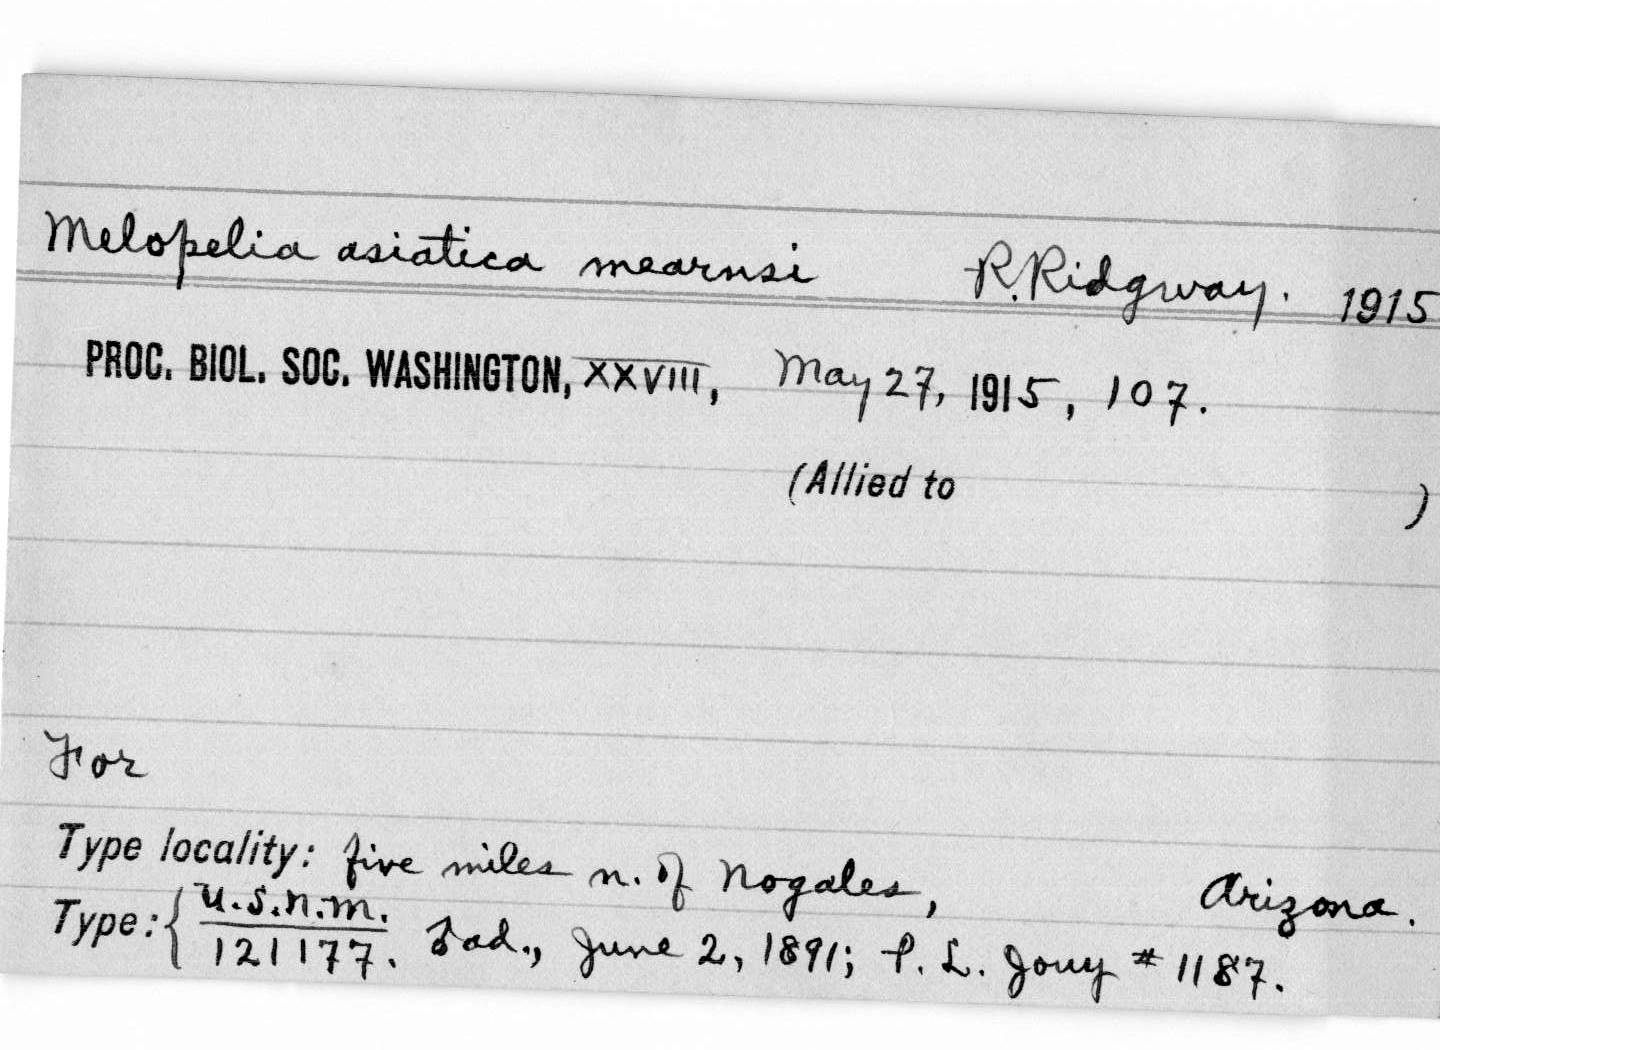 Melopelia asiatica mearnsi R. Ridgway. 1915
PROC. BIOL. SOC. WASHINGTON, XXVIII, May 27, 1915, 107.
(Allied to )
For
Type locality: five miles n. of Nogales, Arizona.
Type: { U.S.N.M. 
121177. ad., June 2, 1891; P. L. Jouy # 1187.